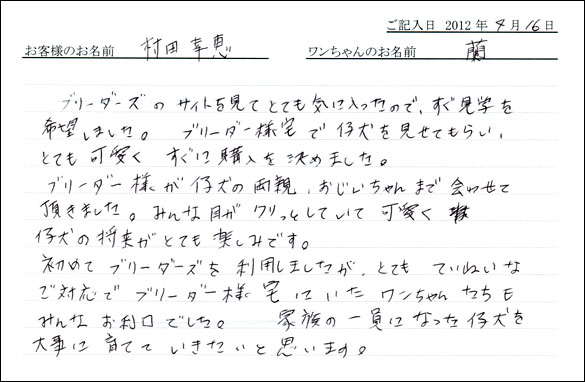 ご記入日 2012年4月16日
お客様のお名前 村田幸恵 ワンちゃんのお名前 蘭
ブリーダーズのサイトを見てとても気に入ったので、すぐ見学を
希望しました。 ブリーダー様宅で仔犬を見せてもらい、
とても可愛く すぐに購入を決めました。
ブリーダー様が仔犬の両親、おじいちゃんまで会わせて
頂きました。みんな目がクリっとしていて可愛く
仔犬の将来がとても楽しみです。
初めてブリーダーズを利用しましたが、とても ていねいな
ご対応でブリーダー様宅にいたワンちゃんたちも
みんなお利口でした。 家族の一員になった仔犬を
大事に育てていきたいと思います。